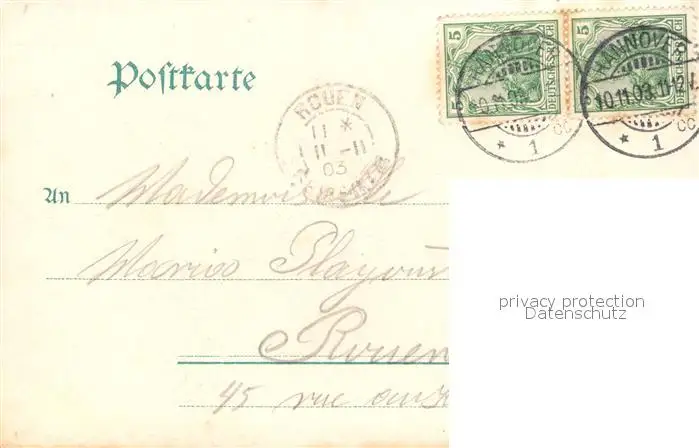 Postkarte
5 DEUTSCHES REICH
5 DEUTSCHES REICH
HANNOVER
10.11.03.11-12 V.
* 1 CC
HANNOVER
10.11.03
* 1 CC
ROUEN
11 *
11 -11
03
An Mademoiselle
Maria
Rouen
45 rue aux
privacy protection
Datenschutz